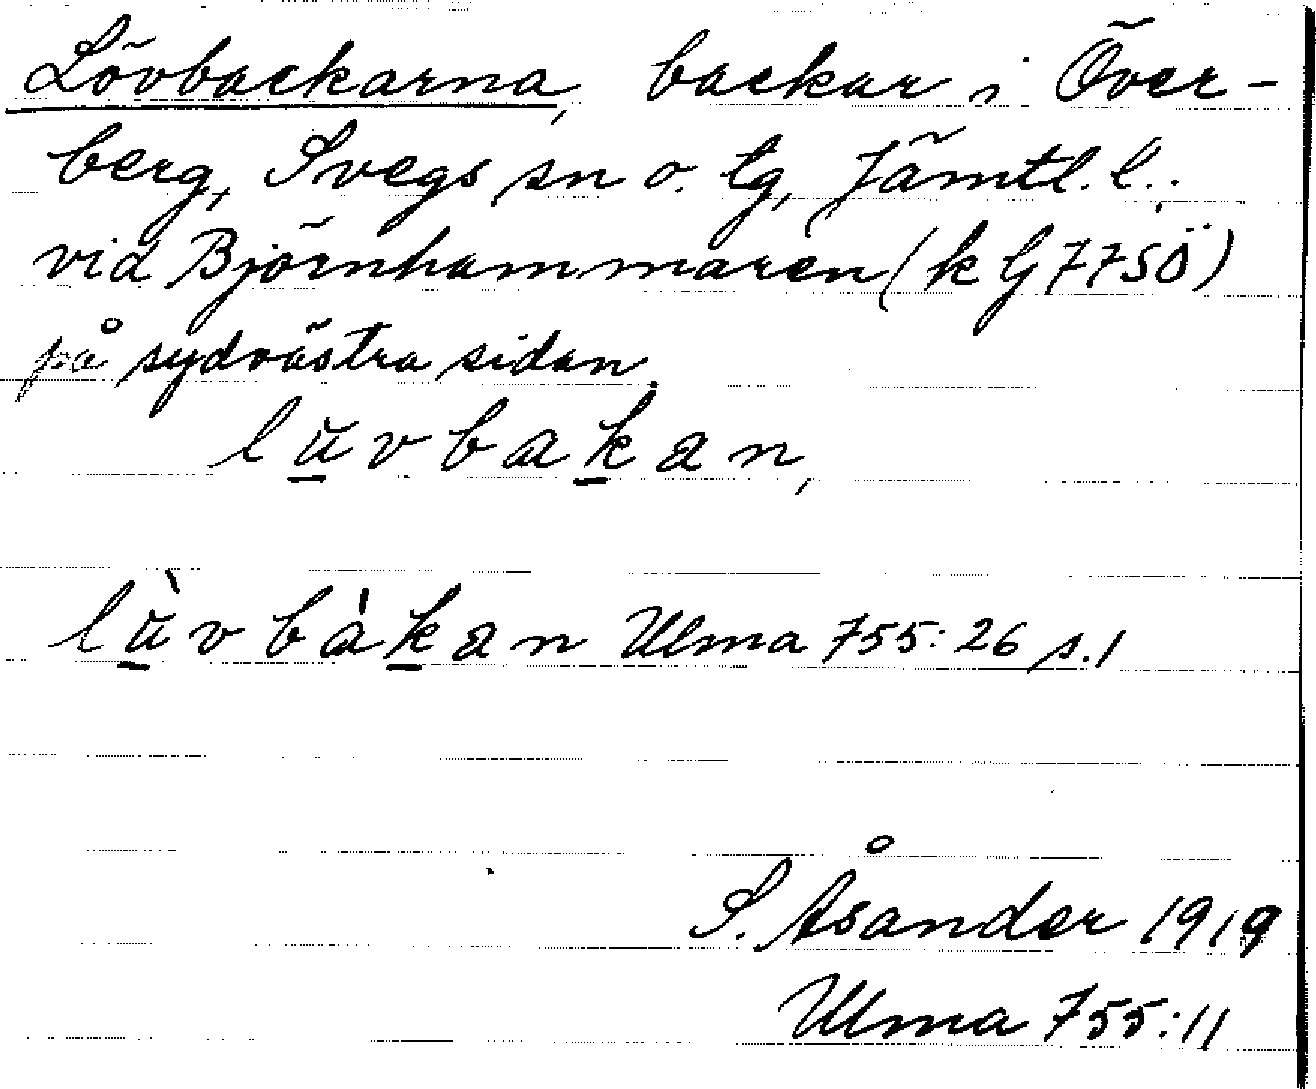 Lövbackarna, backar i Över-
berg, Svegs sn o. tg, Jämtl. l.:
vid Björnhammaren (k G 77 SÖ)
på sydvästra sidan.
lu̠vbak̠an,
lù̠vbàk̠an Ulma 755:26 s.1
S. Åsander 1919
Ulma 755:11